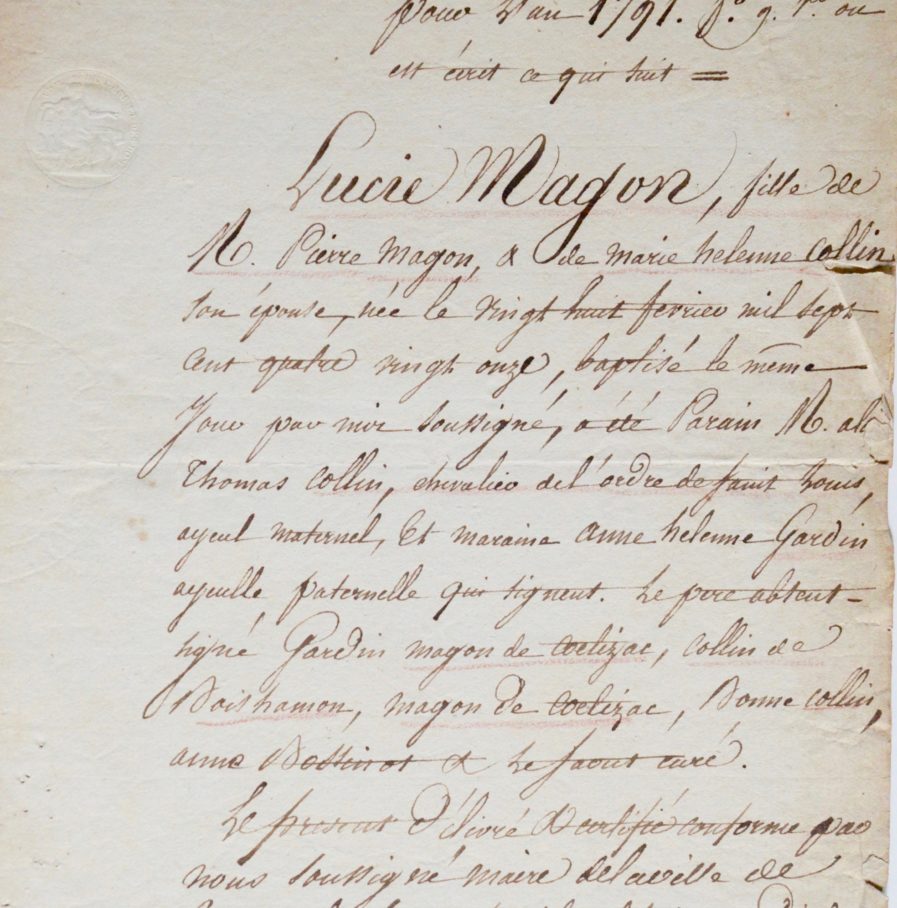 pour l'an 1791. f.o 9. r.o ou
est écrit ce qui suit =
Lucie Magon, fille de
M. Pierre Magon, & de marie helenne Collin
son épouse, née le vingt huit fevrier mil sept
cent quatre vingt onze, baptisé le même
Jour par moi soussigné, a été Parain M.
Thomas Collin, chevalier de l'ordre de saint Louis,
ayeul maternel, Et maraine anne helenne Gardin
ayeulle paternelle qui signent. Le pere absent -
signé Gardin magon de coetizac, Collin de
Boishamon, magon de coetizac, Bonne Collin,
anne & Le saout curé.
Le present délivré & certifié conforme par
nous soussigné maire de la ville de